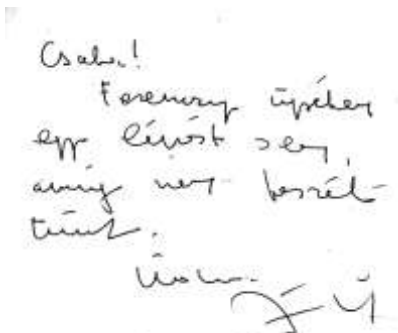 Csaba!
ügyében
egy lépést sem,
amíg nem beszél-
tünk.
Üdv.